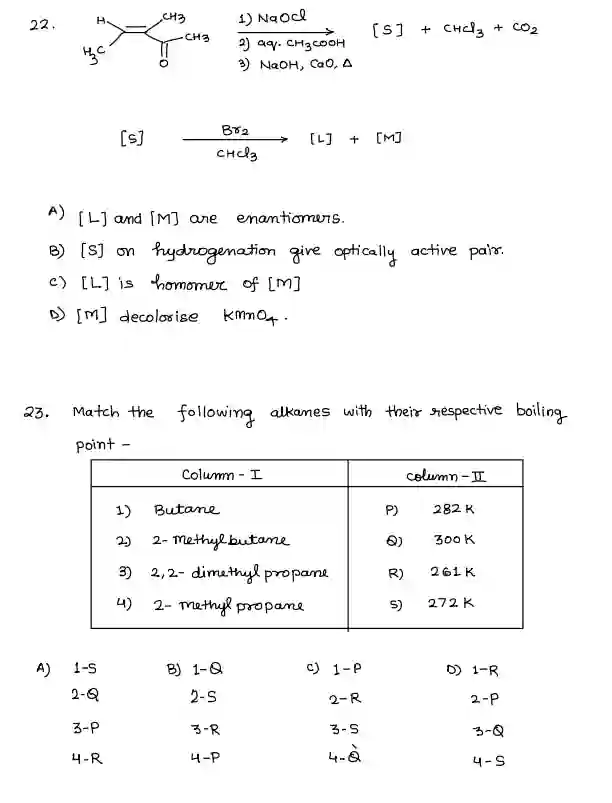 22. H CH3 1) NaOCl [S] + CHCl3 + CO2
CH3 2) aq. CH3COOH
H3C O 3) NaOH, CaO, Δ
[S] Br2 [L] + [M]
CHCl3
A) [L] and [M] are enantiomers.
B) [S] on hydrogenation give optically active pair.
C) [L] is homomer of [M]
D) [M] decolorise KMnO4.
23. Match the following alkanes with their respective boiling
point -
Column - I column - II
1) Butane P) 282 K
2) 2- methyl butane Q) 300 K
3) 2,2- dimethyl propane R) 261 K
4) 2- methyl propane S) 272 K
A) 1-S B) 1-Q C) 1-P D) 1-R
2-Q 2-S 2-R 2-P
3-P 3-R 3-S 3-Q
4-R 4-P 4-Q 4-S